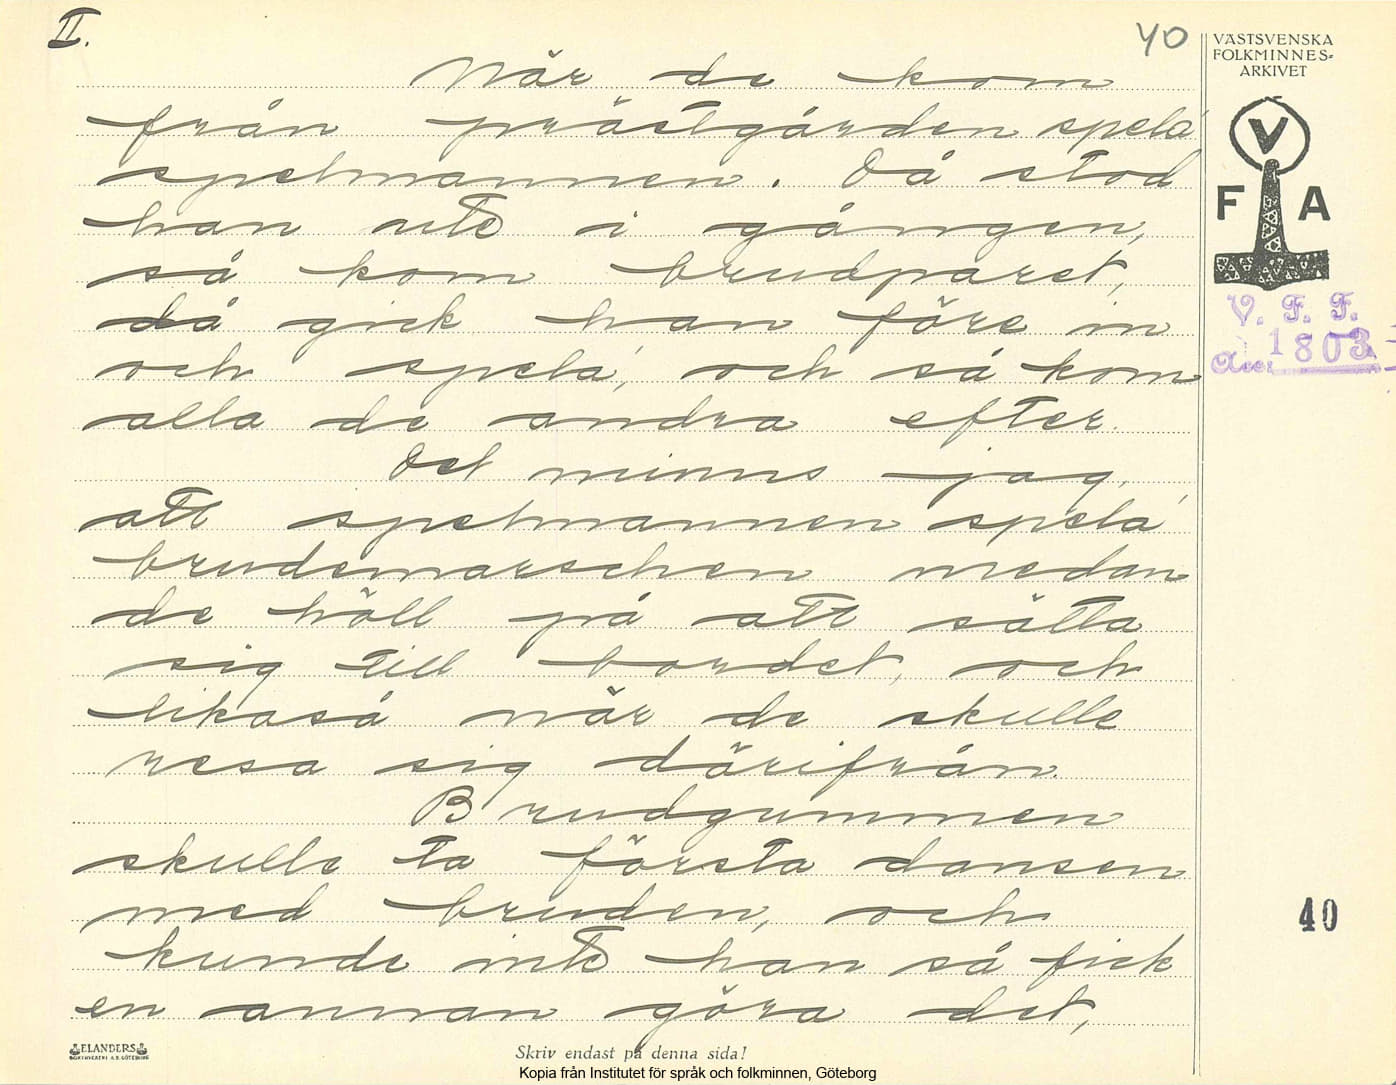 II.
40
VÄSTSVENSKA
FOLKMINNES-
ARKIVET
V
F A
V. F. F.
Acc. 1803
När de kom
från prästgården spela'
spelmannen. Då stod
han ute i gången,
så kom brudparet,
då gick han före in
och spela', och så kom
alla de andra efter.
Det minns jag,
att spelmannen spela'
brudemarschen medan
de höll på att sätta
sig till bordet, och
likaså när de skulle
resa sig därifrån.
Brudgummen
skulle ta första dansen
med bruden, och
kunde inte han så fick
en annan göra det,
40
ELANDERS
BOKTRYCKERI A.B. GÖTEBORG
Skriv endast på denna sida!
Kopia från Institutet för språk och folkminnen, Göteborg